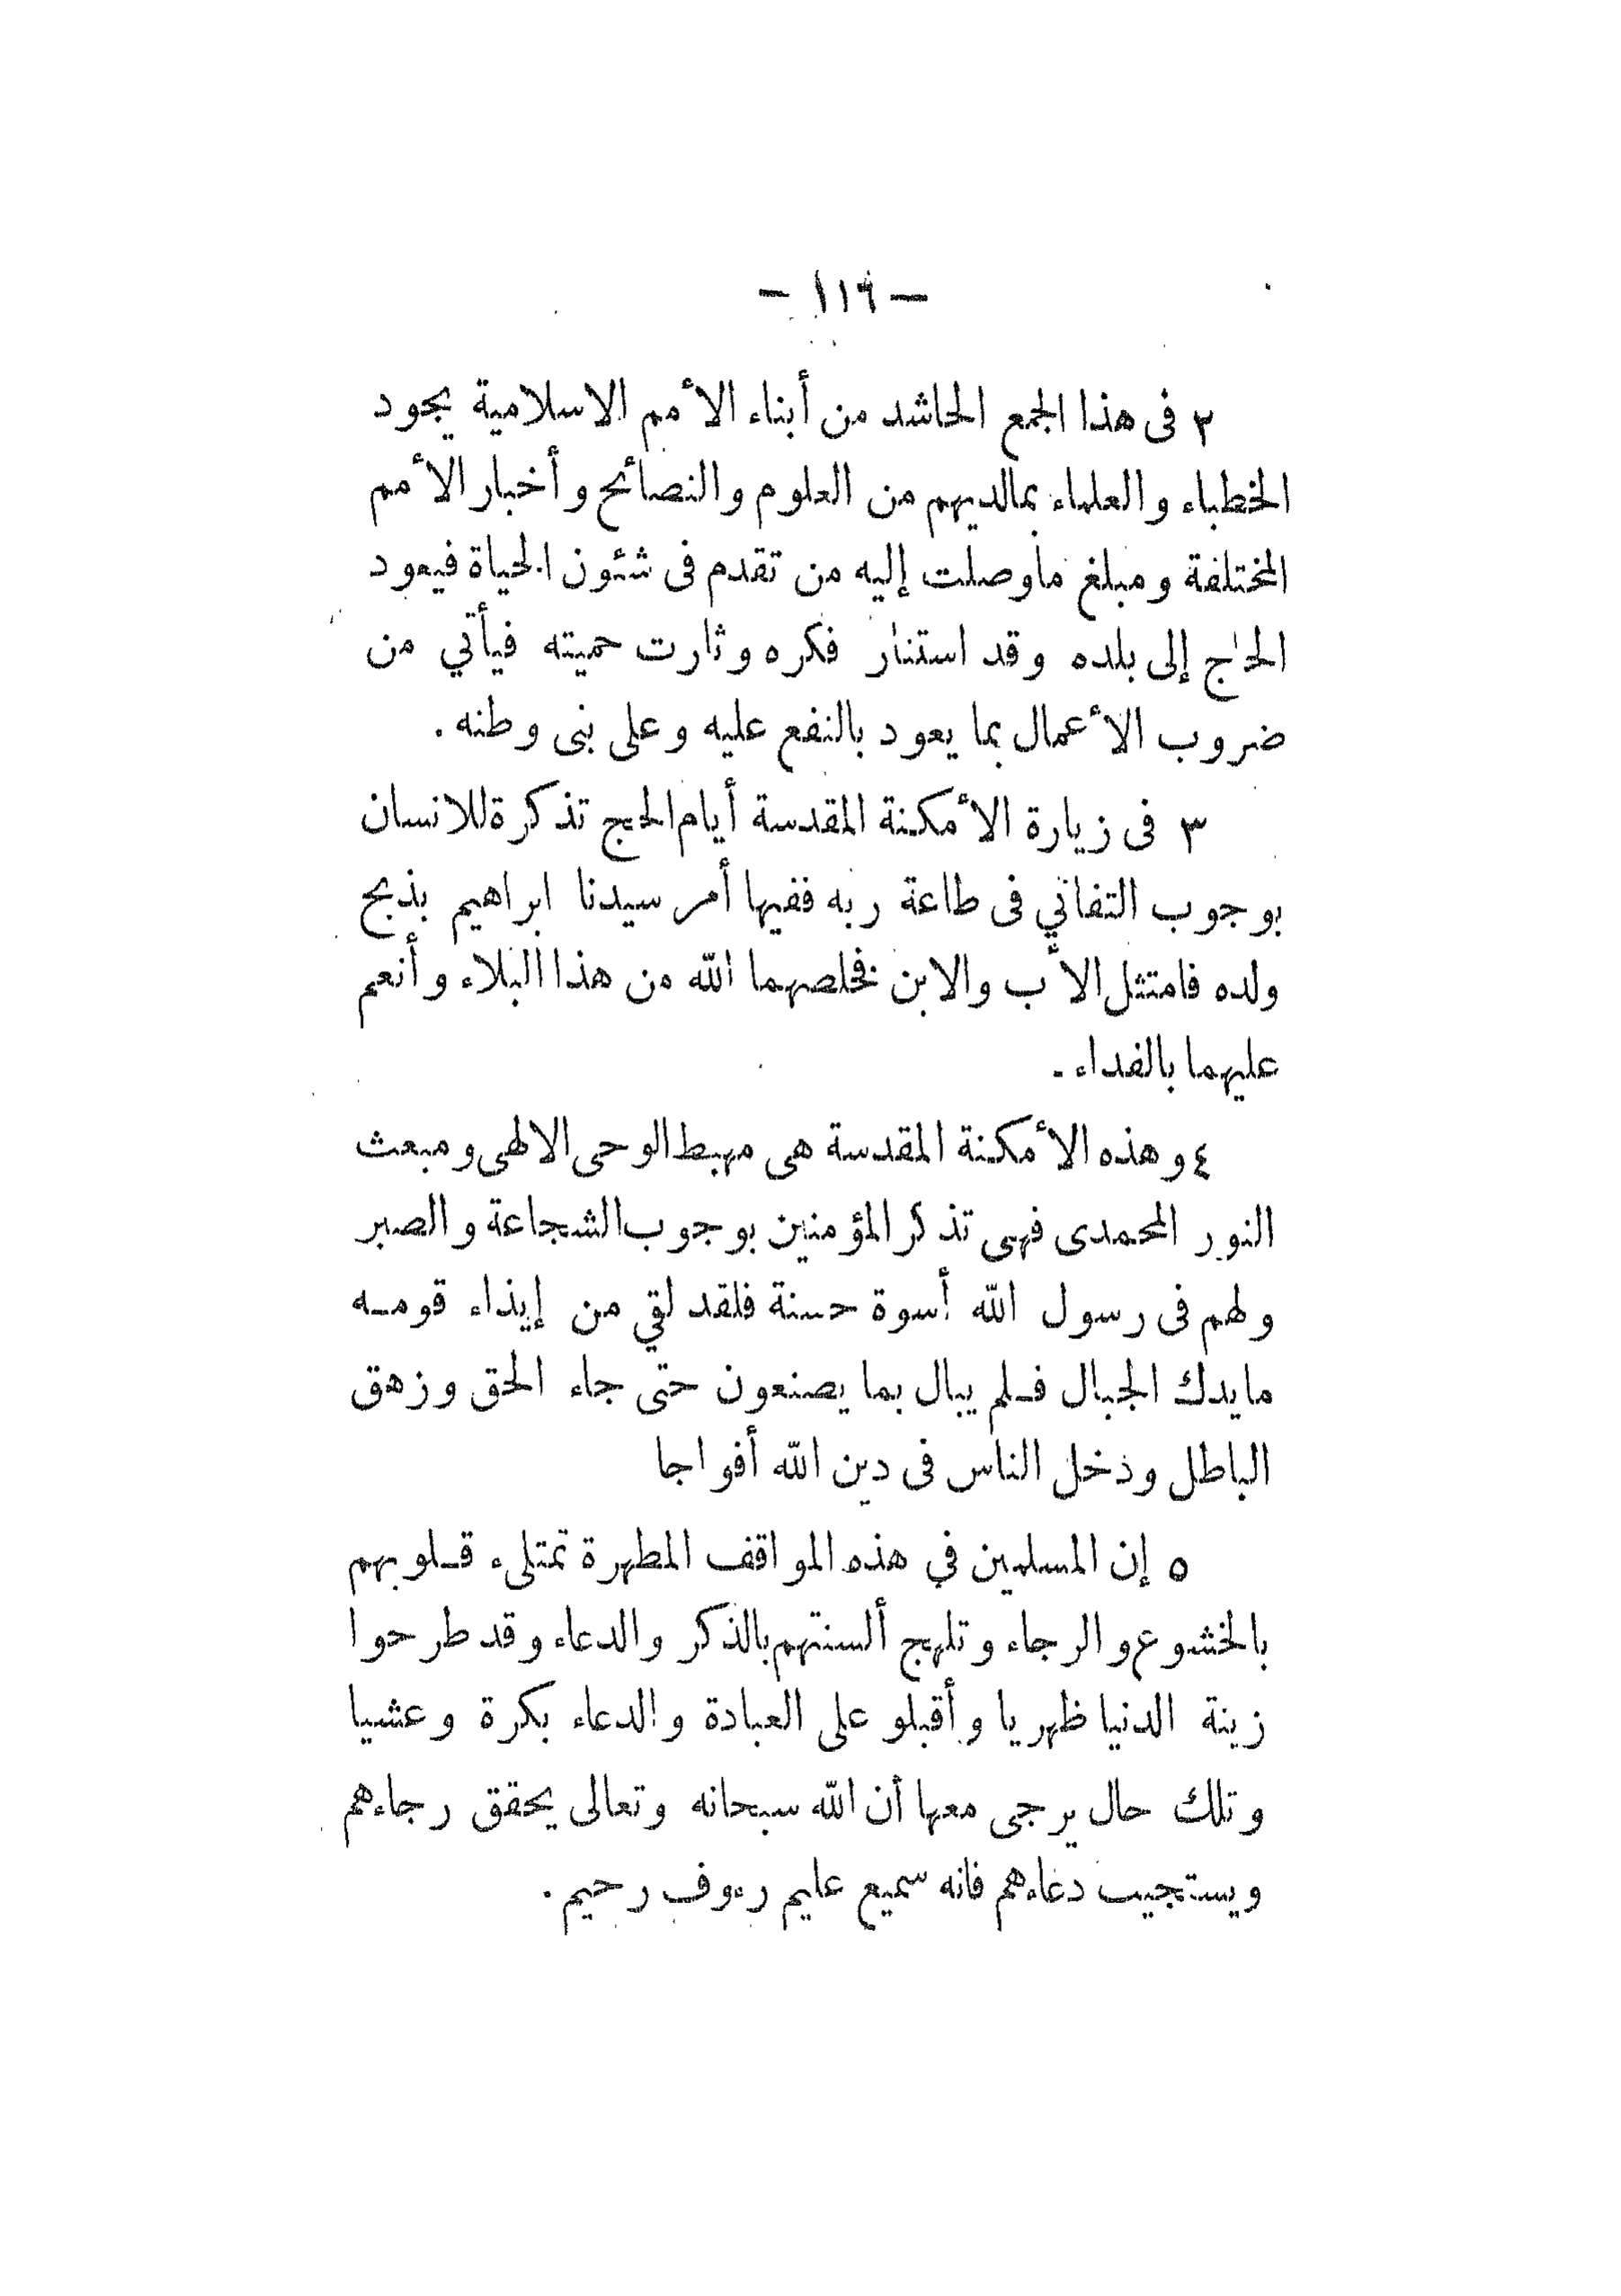 — ١١٦ —
٢ فى هذا الجمع الحاشد من أبناء الأمم الاسلامية يجود
الخطباء والعلماء بمالديهم من العلوم والنصائح وأخبار الأمم
المختلفة ومبلغ ماوصلت إليه من تقدم فى شئون الحياة فيعود
الحاج إلى بلده وقد استنار فكره وثارت حميته فيأتي من
ضروب الأعمال بما يعود بالنفع عليه وعلى بنى وطنه .
٣ فى زيارة الأمكنة المقدسة أيام الحج تذكرة للانسان
بوجوب التفاني فى طاعة ربه ففيها أمر سيدنا ابراهيم بذبح
ولده فامتثل الأب والابن فخلصهما الله من هذا البلاء وأنعم
عليهما بالفداء .
٤ وهذه الأمكنة المقدسة هى مهبط الوحى الالهى ومبعث
النور المحمدى فهى تذكر المؤمنين بوجوب الشجاعة والصبر
ولهم فى رسول الله أسوة حسنة فلقد لقي من إيذاء قومـه
مايدك الجبال فـلم يبال بما يصنعون حتى جاء الحق وزهق
الباطل ودخل الناس فى دين الله أفواجا
٥ إن المسلمين في هذه المواقف المطهرة تمتلىء قـلوبهم
بالخشوع والرجاء وتلهج ألسنتهم بالذكر والدعاء وقد طرحوا
زينة الدنيا ظهريا وأقبلو على العبادة والدعاء بكرة وعشيا
وتلك حال يرجى معها أن الله سبحانه وتعالى يحقق رجاءهم
ويستجيب دعاءهم فانه سميع عليم رءوف رحيم .